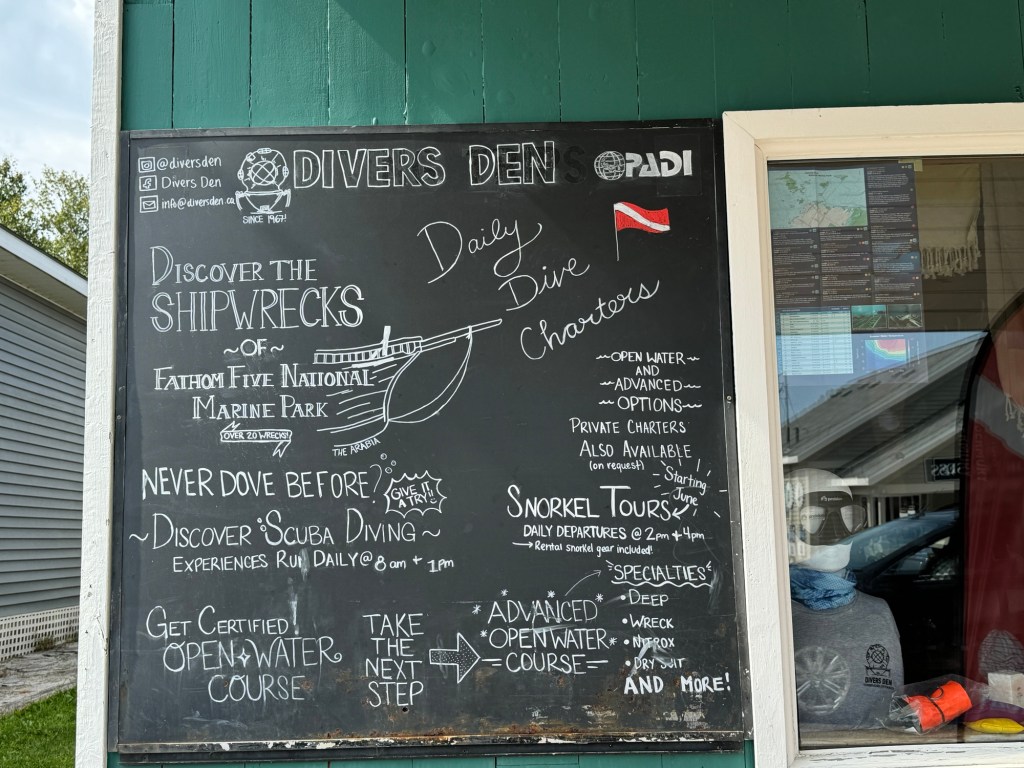 @diversden
Divers Den
info@diversden.ca
SINCE 1967!
DIVERS DEN
PADI
Daily
Dive
Charters
DISCOVER THE
SHIPWRECKS
~OF~
FATHOM FIVE NATIONAL
MARINE PARK
OVER 20 WRECKS!
THE ARABIA
~OPEN WATER~
AND
~ADVANCED~
~OPTIONS~
PRIVATE CHARTERS
ALSO AVAILABLE
(on request)
NEVER DOVE BEFORE?
GIVE IT
A TRY!!
~DISCOVER SCUBA DIVING~
EXPERIENCES RUN DAILY @ 8am + 1pm
Starting
June
SNORKEL TOURS
DAILY DEPARTURES @ 2pm + 4pm
Rental snorkel gear included!
GET CERTIFIED!
OPEN WATER
COURSE
TAKE
THE
NEXT
STEP
ADVANCED
OPEN WATER
COURSE
SPECIALTIES
•DEEP
•WRECK
•NITROX
•DRY SUIT
AND MORE!
DIVERS DEN